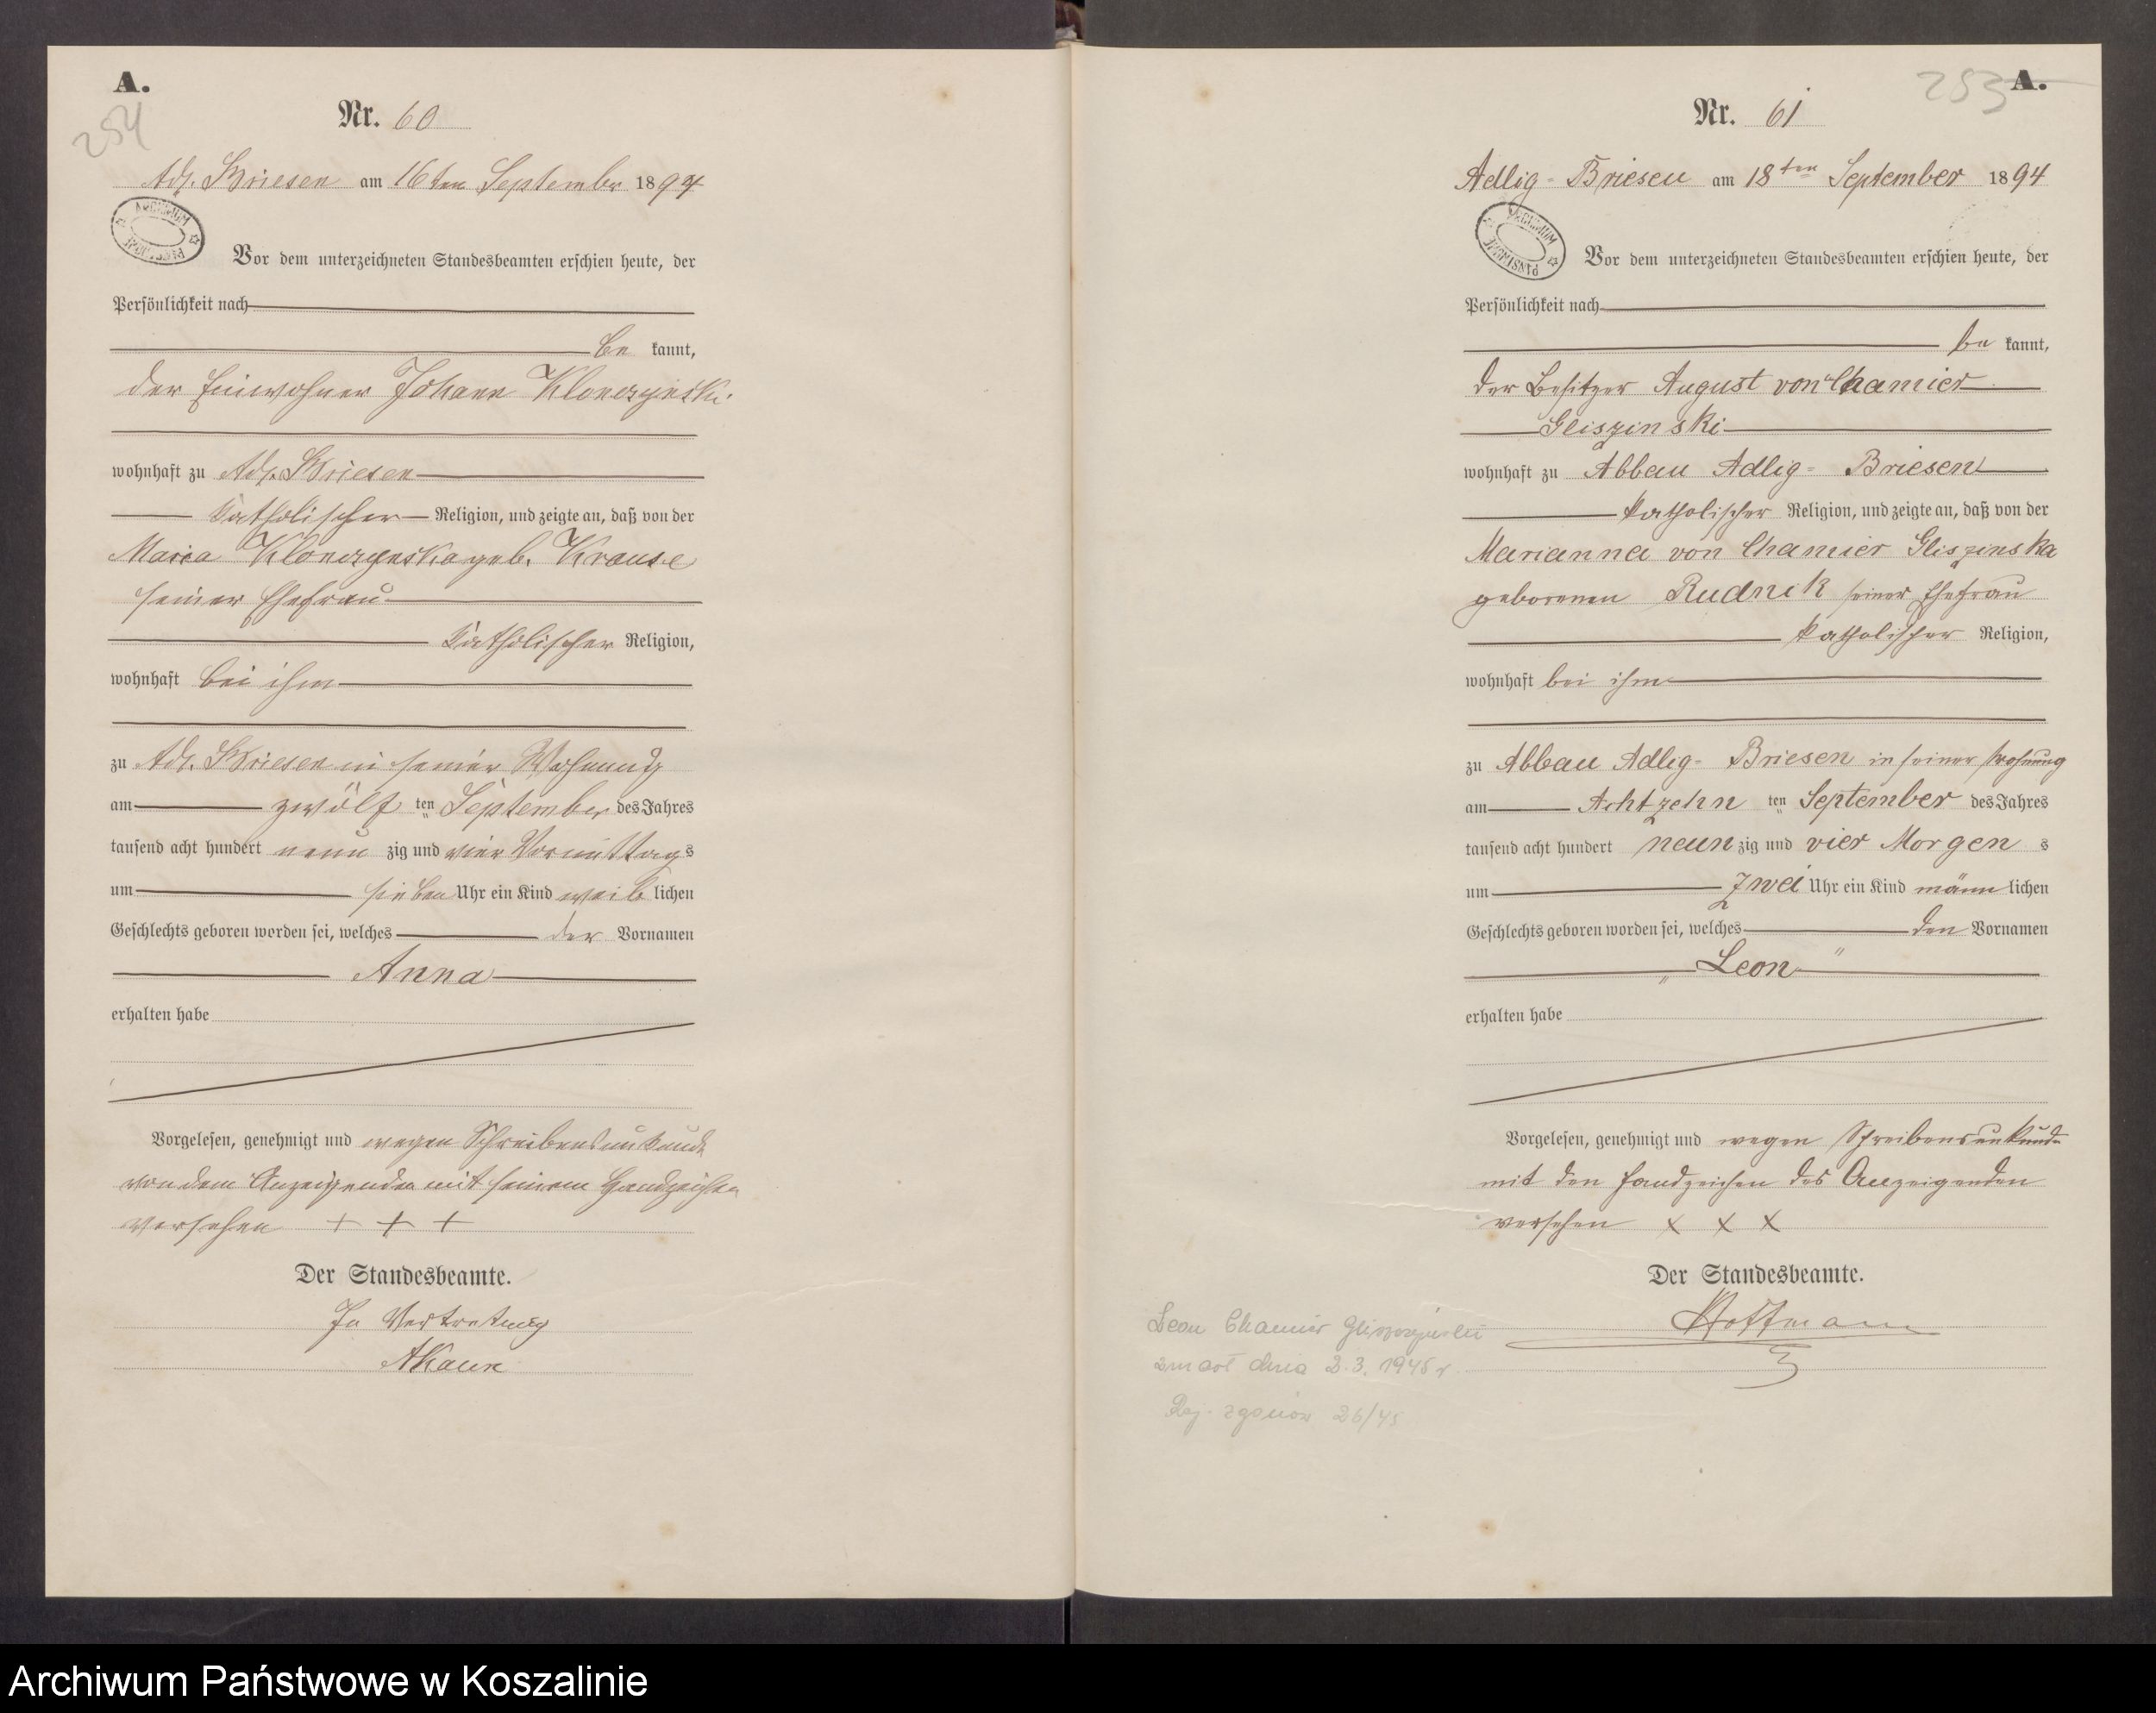 A.
254
Nr. 60
Adl. Briesen am 16ten September 1894
ARCHIWUM PAŃSTWOWE
Vor dem unterzeichneten Standesbeamten erschien heute, der
Persönlichkeit nach
be kannt,
der Einwohner Johann Klonczynski
wohnhaft zu Adl. Briesen
katholischer Religion, und zeigte an, daß von der
Maria Klonczynska geb. Krause
seiner Ehefrau
katholischer Religion,
wohnhaft bei ihm
zu Adl. Briesen in seiner Wohnung
am zwölf ten September des Jahres
tausend acht hundert neun zig und vier Vormittags
um sieben Uhr ein Kind weib lichen
Geschlechts geboren worden sei, welches der Vornamen
Anna
erhalten habe
Vorgelesen, genehmigt und wegen Schreibensunkunde
von dem Anzeigenden mit seinem Handzeichen
versehen + + +
Der Standesbeamte.
In Vertretung
253 A.
Nr. 61
Adlig-Briesen am 18ten September 1894
ARCHIWUM PAŃSTWOWE
Vor dem unterzeichneten Standesbeamten erschien heute, der
Persönlichkeit nach
be kannt,
der Besitzer August von Chamier
Gliszinski
wohnhaft zu Abbau Adlig-Briesen
katholischer Religion, und zeigte an, daß von der
Marianna von Chamier Gliszinska
geborenen Rudnik seiner Ehefrau
katholischer Religion,
wohnhaft bei ihm
zu Abbau Adlig-Briesen in seiner Wohnung
am Achtzehn ten September des Jahres
tausend acht hundert neun zig und vier Morgen s
um zwei Uhr ein Kind männ lichen
Geschlechts geboren worden sei, welches den Vornamen
„Leon“
erhalten habe
Vorgelesen, genehmigt und wegen Schreibensunkunde
mit den Handzeichen des Anzeigenden
versehen x x x
Der Standesbeamte.
Hoffmann
Leon Chamier Gliszczyński
zmarł dnia 2.3.1945 r.
Rej. zgonów 26/45
Archiwum Państwowe w Koszalinie